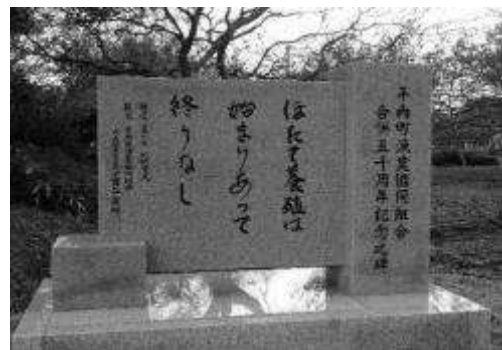 平内町漁業協同組合
合併五十周年記念之碑
ほたて養殖は
始まりあって
終りなし